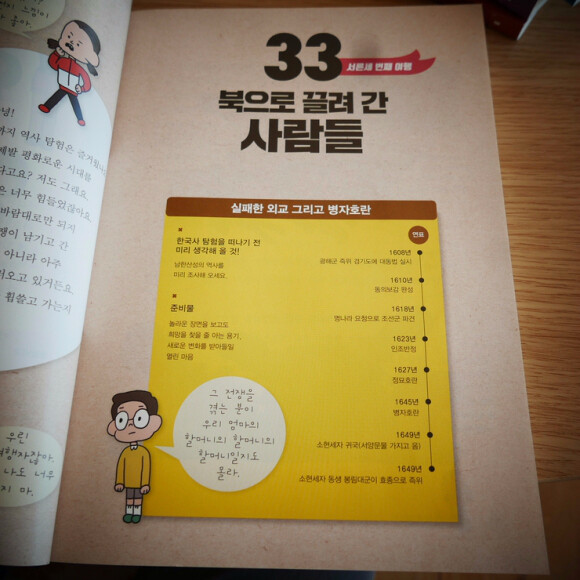 느낌이
녕!
까지 역사 탐험은 즐거웠
제발 평화로운 시대를
다고요? 저도 그래요.
은 너무 힘들었잖아요.
바람대로만 되지
쟁이 남기고 간
아니라 아주
리오고 있거든요.
휩쓸고 가는지
우린
여행자잖아.
나도 너무
지 마.
33
서른세 번째 여행
북으로 끌려 간
사람들
실패한 외교 그리고 병자호란
한국사 탐험을 떠나기 전
미리 생각해 올 것!
남한산성의 역사를
미리 조사해 오세요.
준비물
놀라운 장면을 보고도
희망을 찾을 줄 아는 용기,
새로운 변화를 받아들일
열린 마음
연표
1608년
광해군 즉위 경기도에 대동법 실시
1610년
동의보감 완성
1618년
명나라 요청으로 조선군 파견
1623년
인조반정
1627년
정묘호란
1645년
병자호란
1649년
소현세자 귀국(서양문물 가지고 옴)
1649년
소현세자 동생 봉림대군이 효종으로 즉위
그 전쟁을
겪는 분이
우리 엄마의
할머니의 할머니의
할머니일지도
몰라.